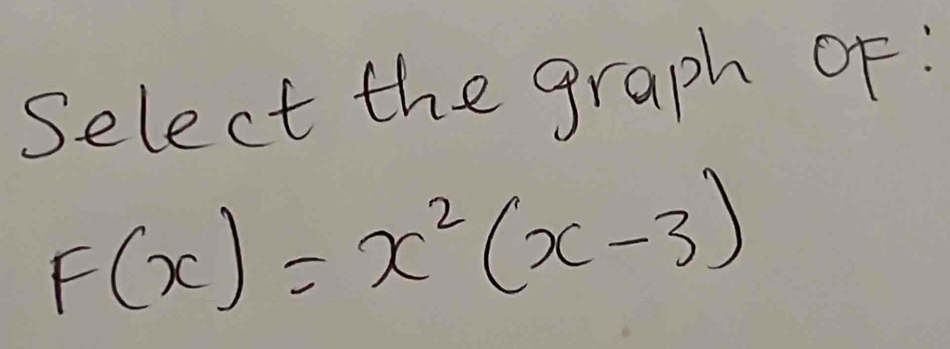 Select the graph OF:
F(x) = x²(x-3)